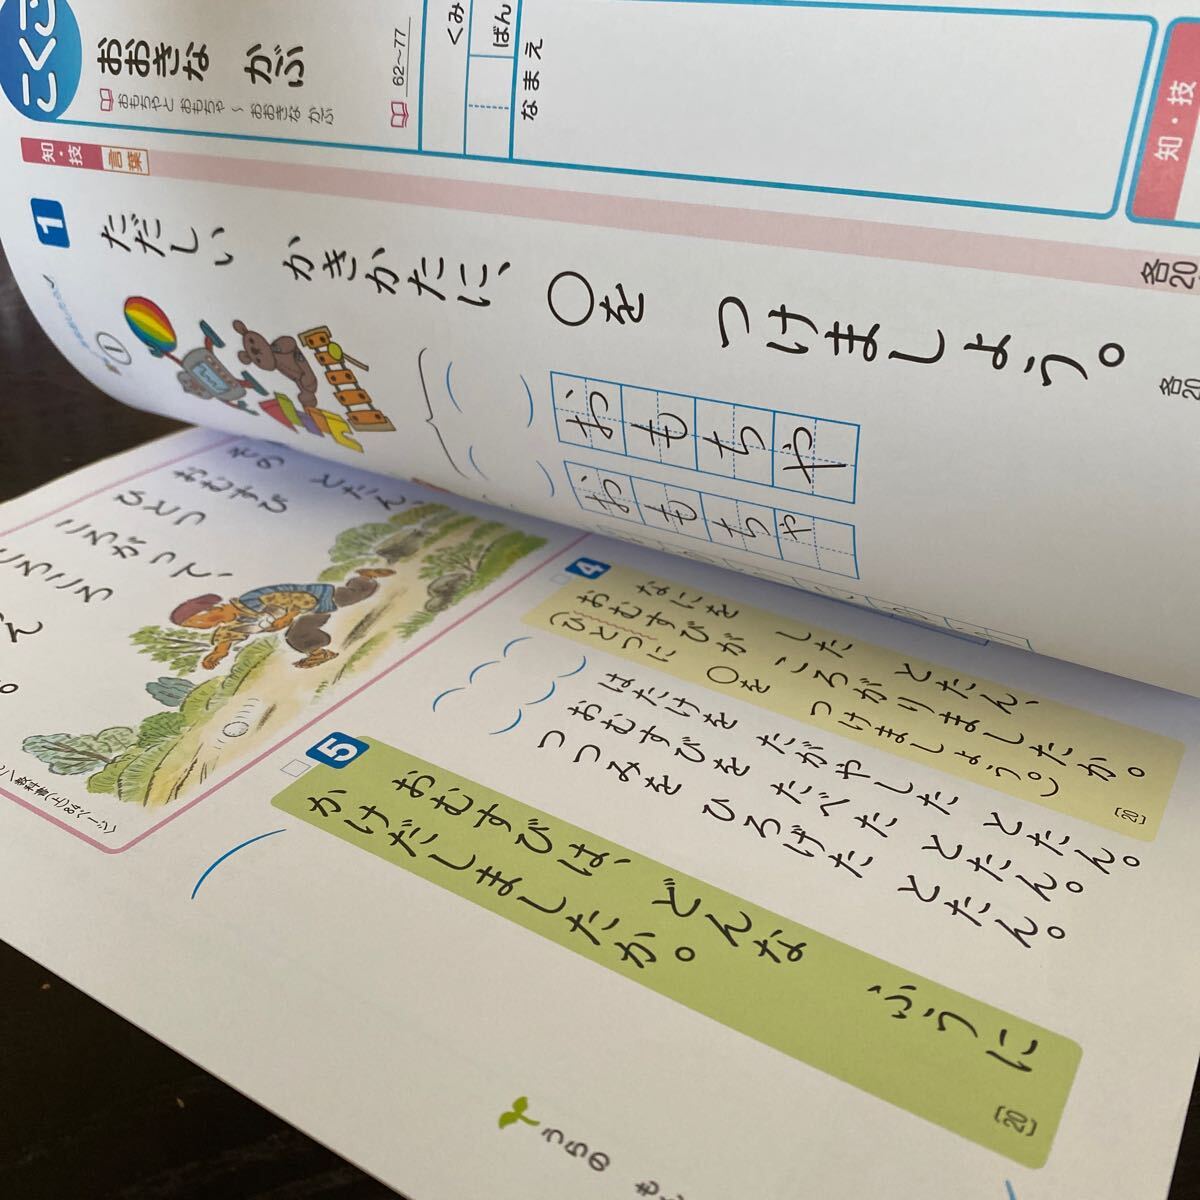 こくご
おおきな かぶ
おもちゃと おもちゃ ～ おおきな かぶ
62～77
くみ
ばん
なまえ
知・技
知・技
言葉
1
ただしい かきかたに、 ○を つけましょう。
各20
各20
①
おもちや
おもちゃ
その とだん、
おむすび
ひとつ
ころがって、
ころころ
4
なにを した とだん、
おむすびが ころがりましたか。
(ひとつに ○を つけましょう。)
[20]
はたけを たがやした とたん。
おむすびを たべた とたん。
つつみを ひろげた とたん。
5
おむすびは、どんな ふうに
かけだしましたか。
[20]
うらの